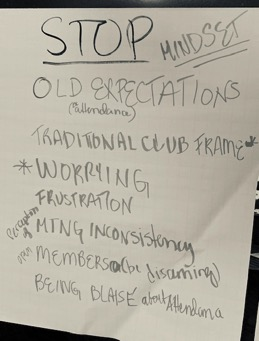 STOP
MINDSET
OLD EXPECTATIONS
(attendance)
TRADITIONAL CLUB FRAME
* WORRYING
FRUSTRATION
Perception of MTNG INCONSISTENCY
open MEMBERS (be discerning)
BEING BLAISÉ about Attendance